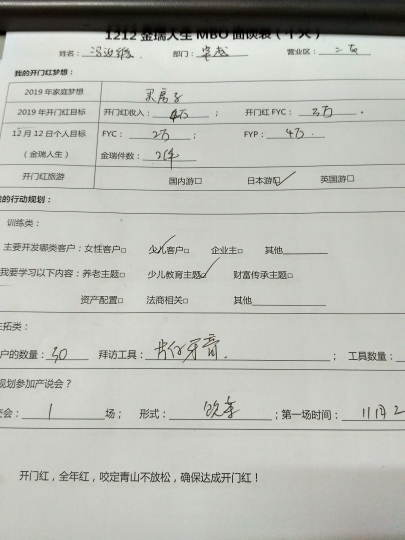 1212金瑞人生MBO面谈表（个人）
姓名： 部门： 营业区：二区
我的开门红梦想：
2019年家庭梦想 买房子
2019年开门红目标 开门红收入：4万； 开门红FYC：3万.
12月12日个人目标 FYC：2万； FYP：4万.
（金瑞人生） 金瑞件数：2件
开门红旅游 国内游□ 日本游☑ 英国游□
的行动规划：
训练类：
主要开发哪类客户：女性客户□ 少儿客户☑ 企业主□ 其他
我要学习以下内容：养老主题□ 少儿教育主题☑ 财富传承主题□
资产配置□ 法商相关□ 其他
主拓类：
户的数量：30 拜访工具：牙膏. ；工具数量：
规划参加产说会？
会： 1 场； 形式： ；第一场时间：11月2
开门红，全年红，咬定青山不放松，确保达成开门红！